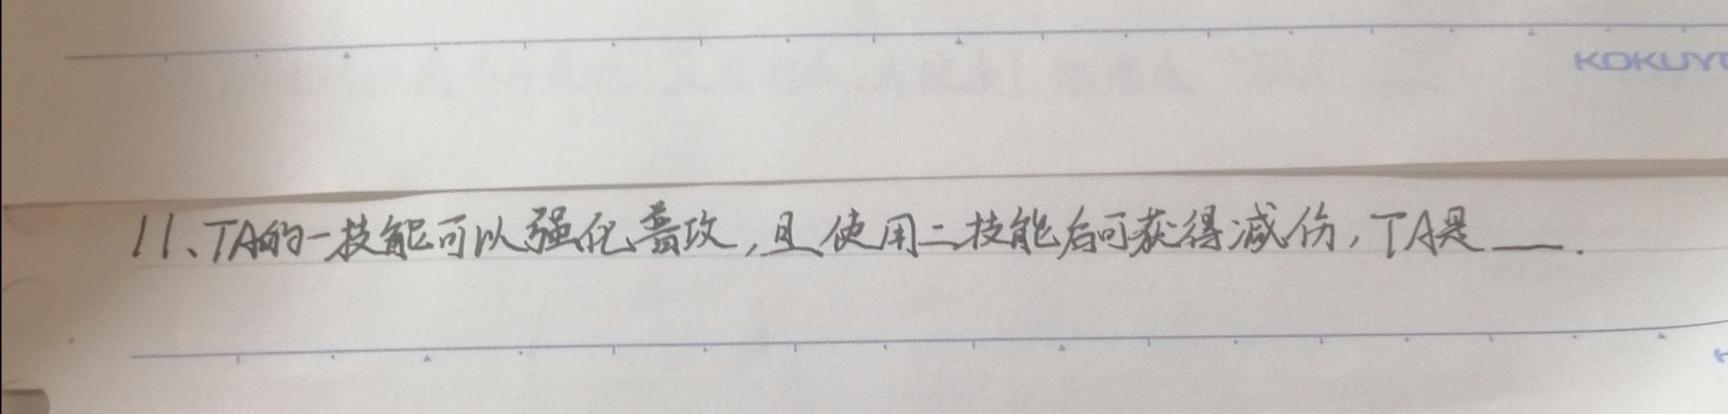 KOKUYO
11、TA的一技能可以强化普攻,且使用二技能后可获得减伤,TA是___.